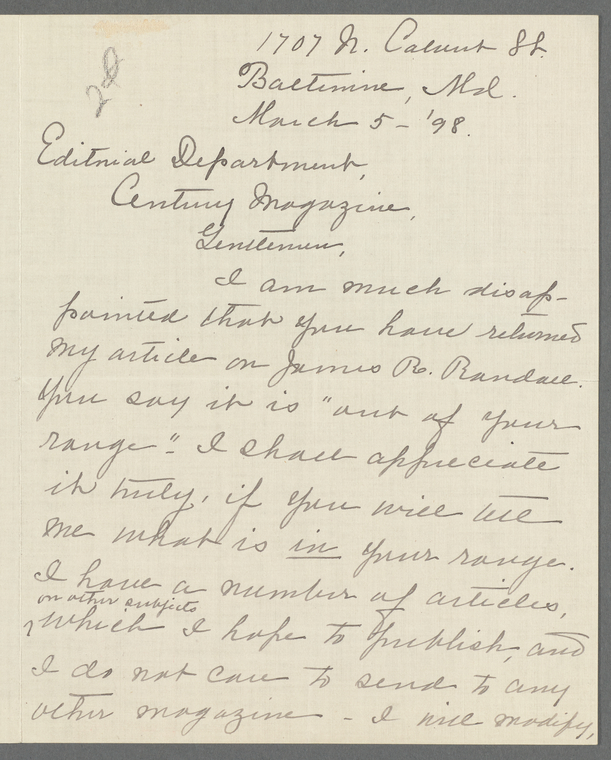 1707 N. Calvert St.
Baltimore, Md.
March 5 - '98.
Editorial Department,
Century Magazine,
Gentlemen,
I am much disap-
pointed that you have returned
my article on James R. Randall.
You say it is "out of your
range". I shall appreciate
it truly, if you will tell
me what is in your range.
I have a number of articles,
on other subjects
which I hope to publish, and
I do not care to send to any
other magazine - I will modify,